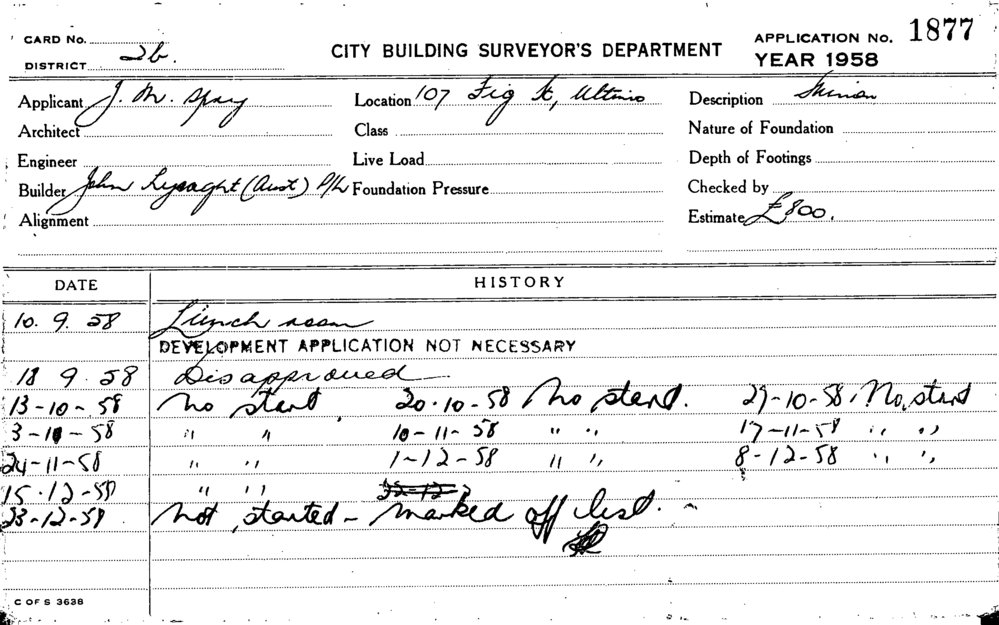 CARD No.
DISTRICT 2b.
CITY BUILDING SURVEYOR'S DEPARTMENT
APPLICATION No. 1877
YEAR 1958
Applicant J. M. Spray
Location 107 Fig St, Ultimo
Description
Architect
Class
Nature of Foundation
Engineer
Live Load
Depth of Footings
Builder John Lysaght (Aust) P/L
Foundation Pressure
Checked by
Alignment
Estimate £800.
DATE HISTORY
10. 9. 58 Lunch room
DEVELOPMENT APPLICATION NOT NECESSARY
18 9. 58 Disapproved
13-10-58 No start, 20.10-58 No start. 27-10-58, No start
3-11-58 " " 10-11-58 " " 17-11-58 " "
24-11-58 " " 1-12-58 " " 8-12-58 " "
15.12-58 " "
23-12-58 Not started - marked off list.
C OF S 3638